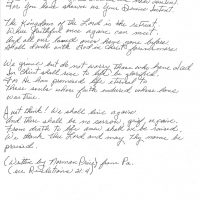 For you have shown us your Divine Intent.
The Kingdom of the Lord is the retreat,
Where faithful once again can meet,
And all our friends who've gone before
Shall dwell with God in Christ forevermore.
We grieve but do not worry those who have died
In Christ shall rise to life be glorified.
For He has promised life eternal to
Those souls whose faith endured whose love
was true.
Just think! We shall live again
And there shall be no sorrow, grief, or pain.
From death to life men shall be raised,
We thank thee Lord and may thy name be
praised.
(Written by Norman from Pa.
(see Revelations 21:4)